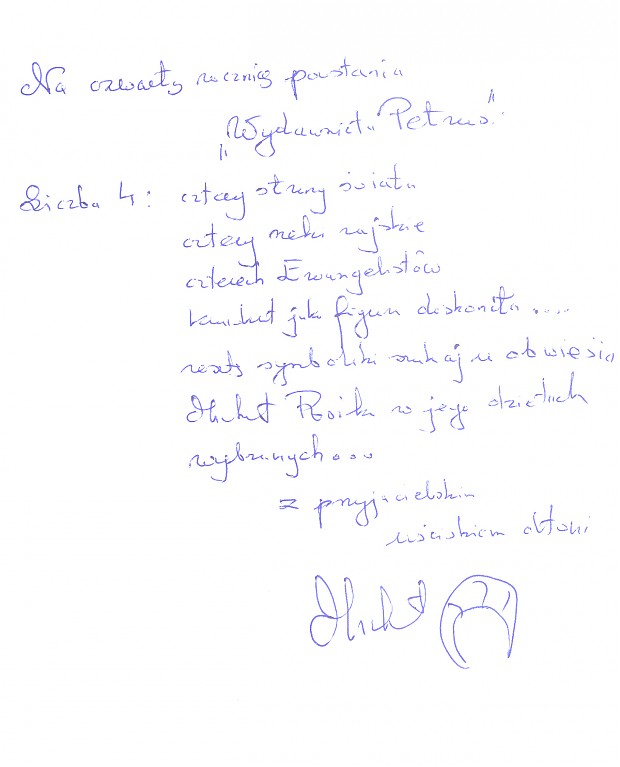 Na czwartą rocznicę powstania
„Wydawnictwa Petrus”
Liczba 4: cztery strony świata
cztery rzeki rajskie
czterech Ewangelistów
kwadrat jako figura doskonała ....
resztę symboliki szukaj u
w jego dziełach
wybranych...
z przyjacielskim
uściskiem